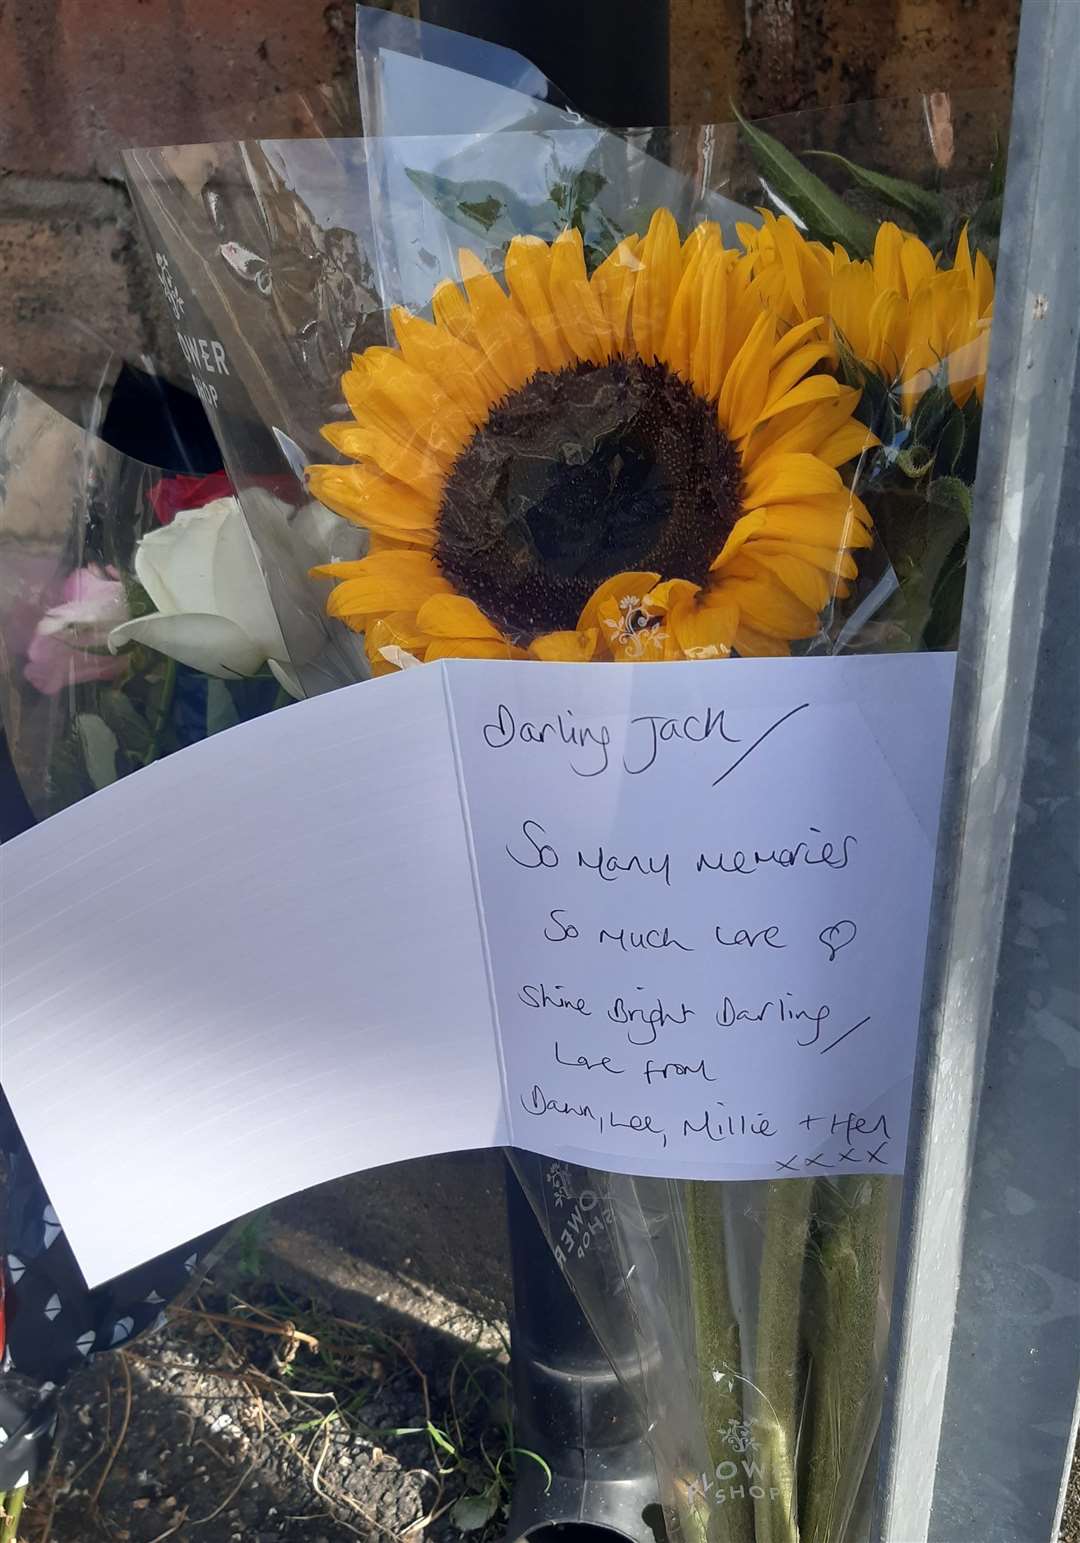 OWER
SHOP
Darling Jack /
So Many Memories
So Much Love ♡
Shine Bright Darling /
Love from
Dawn, Lee, Millie +
xxxx
OWER
SHOP
FLOW
SHOP